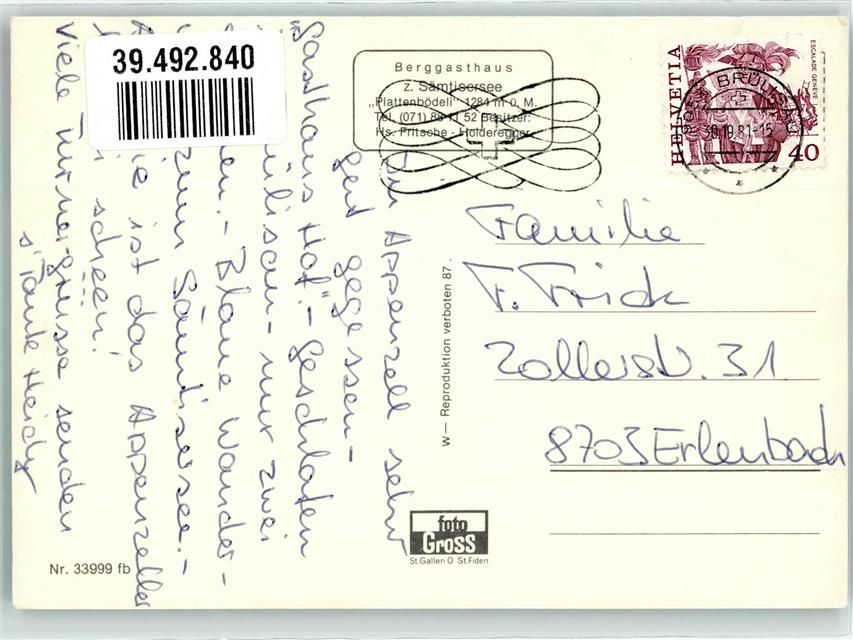 39.492.840
Berggasthaus
z. Sämtisersee
„Plattenbödeli" 1284 m ü. M.
Tel. (071) 88 11 52 Besitzer:
Hs. Fritsche - Holderegger
HELVETIA
ESCALADE GENEVE
40
BRÜLISAU
Appenzell sehr
gut gegessen -
"Gasthaus Hof". - Geschlafen
- nur zwei
- Blaue Wander-
zum Sämtisersee. -
ist das Appenzeller
schëën!
Viele Grüsse senden
s'Tante Heidy
Familie
F. Frick
Zollerstr. 31
8703 Erlenbach
W — Reproduktion verboten 87.
foto
Gross
St.Gallen O St.Fiden
Nr. 33999 fb